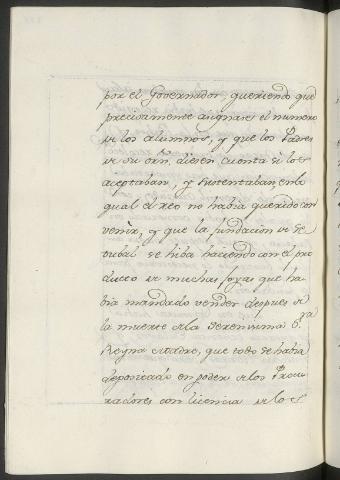 por el Governador, queriendo que
precisamente asignase el numero
de los alumnos, y que los Padres
de su orñ, diesen cuenta de los
aceptaban, y sustentaban, en lo
qual el Reo no habia querido con
venir, y que la fundacion de Se
tubal se hiba haciendo con el pro
ducto de muchas joyas que ha
bia mandado vender despues de
la muerte de la Serenisima S.ra
Reyna Madre, que todo se habia
depositado en poder de los Procu
radores con licencia de los